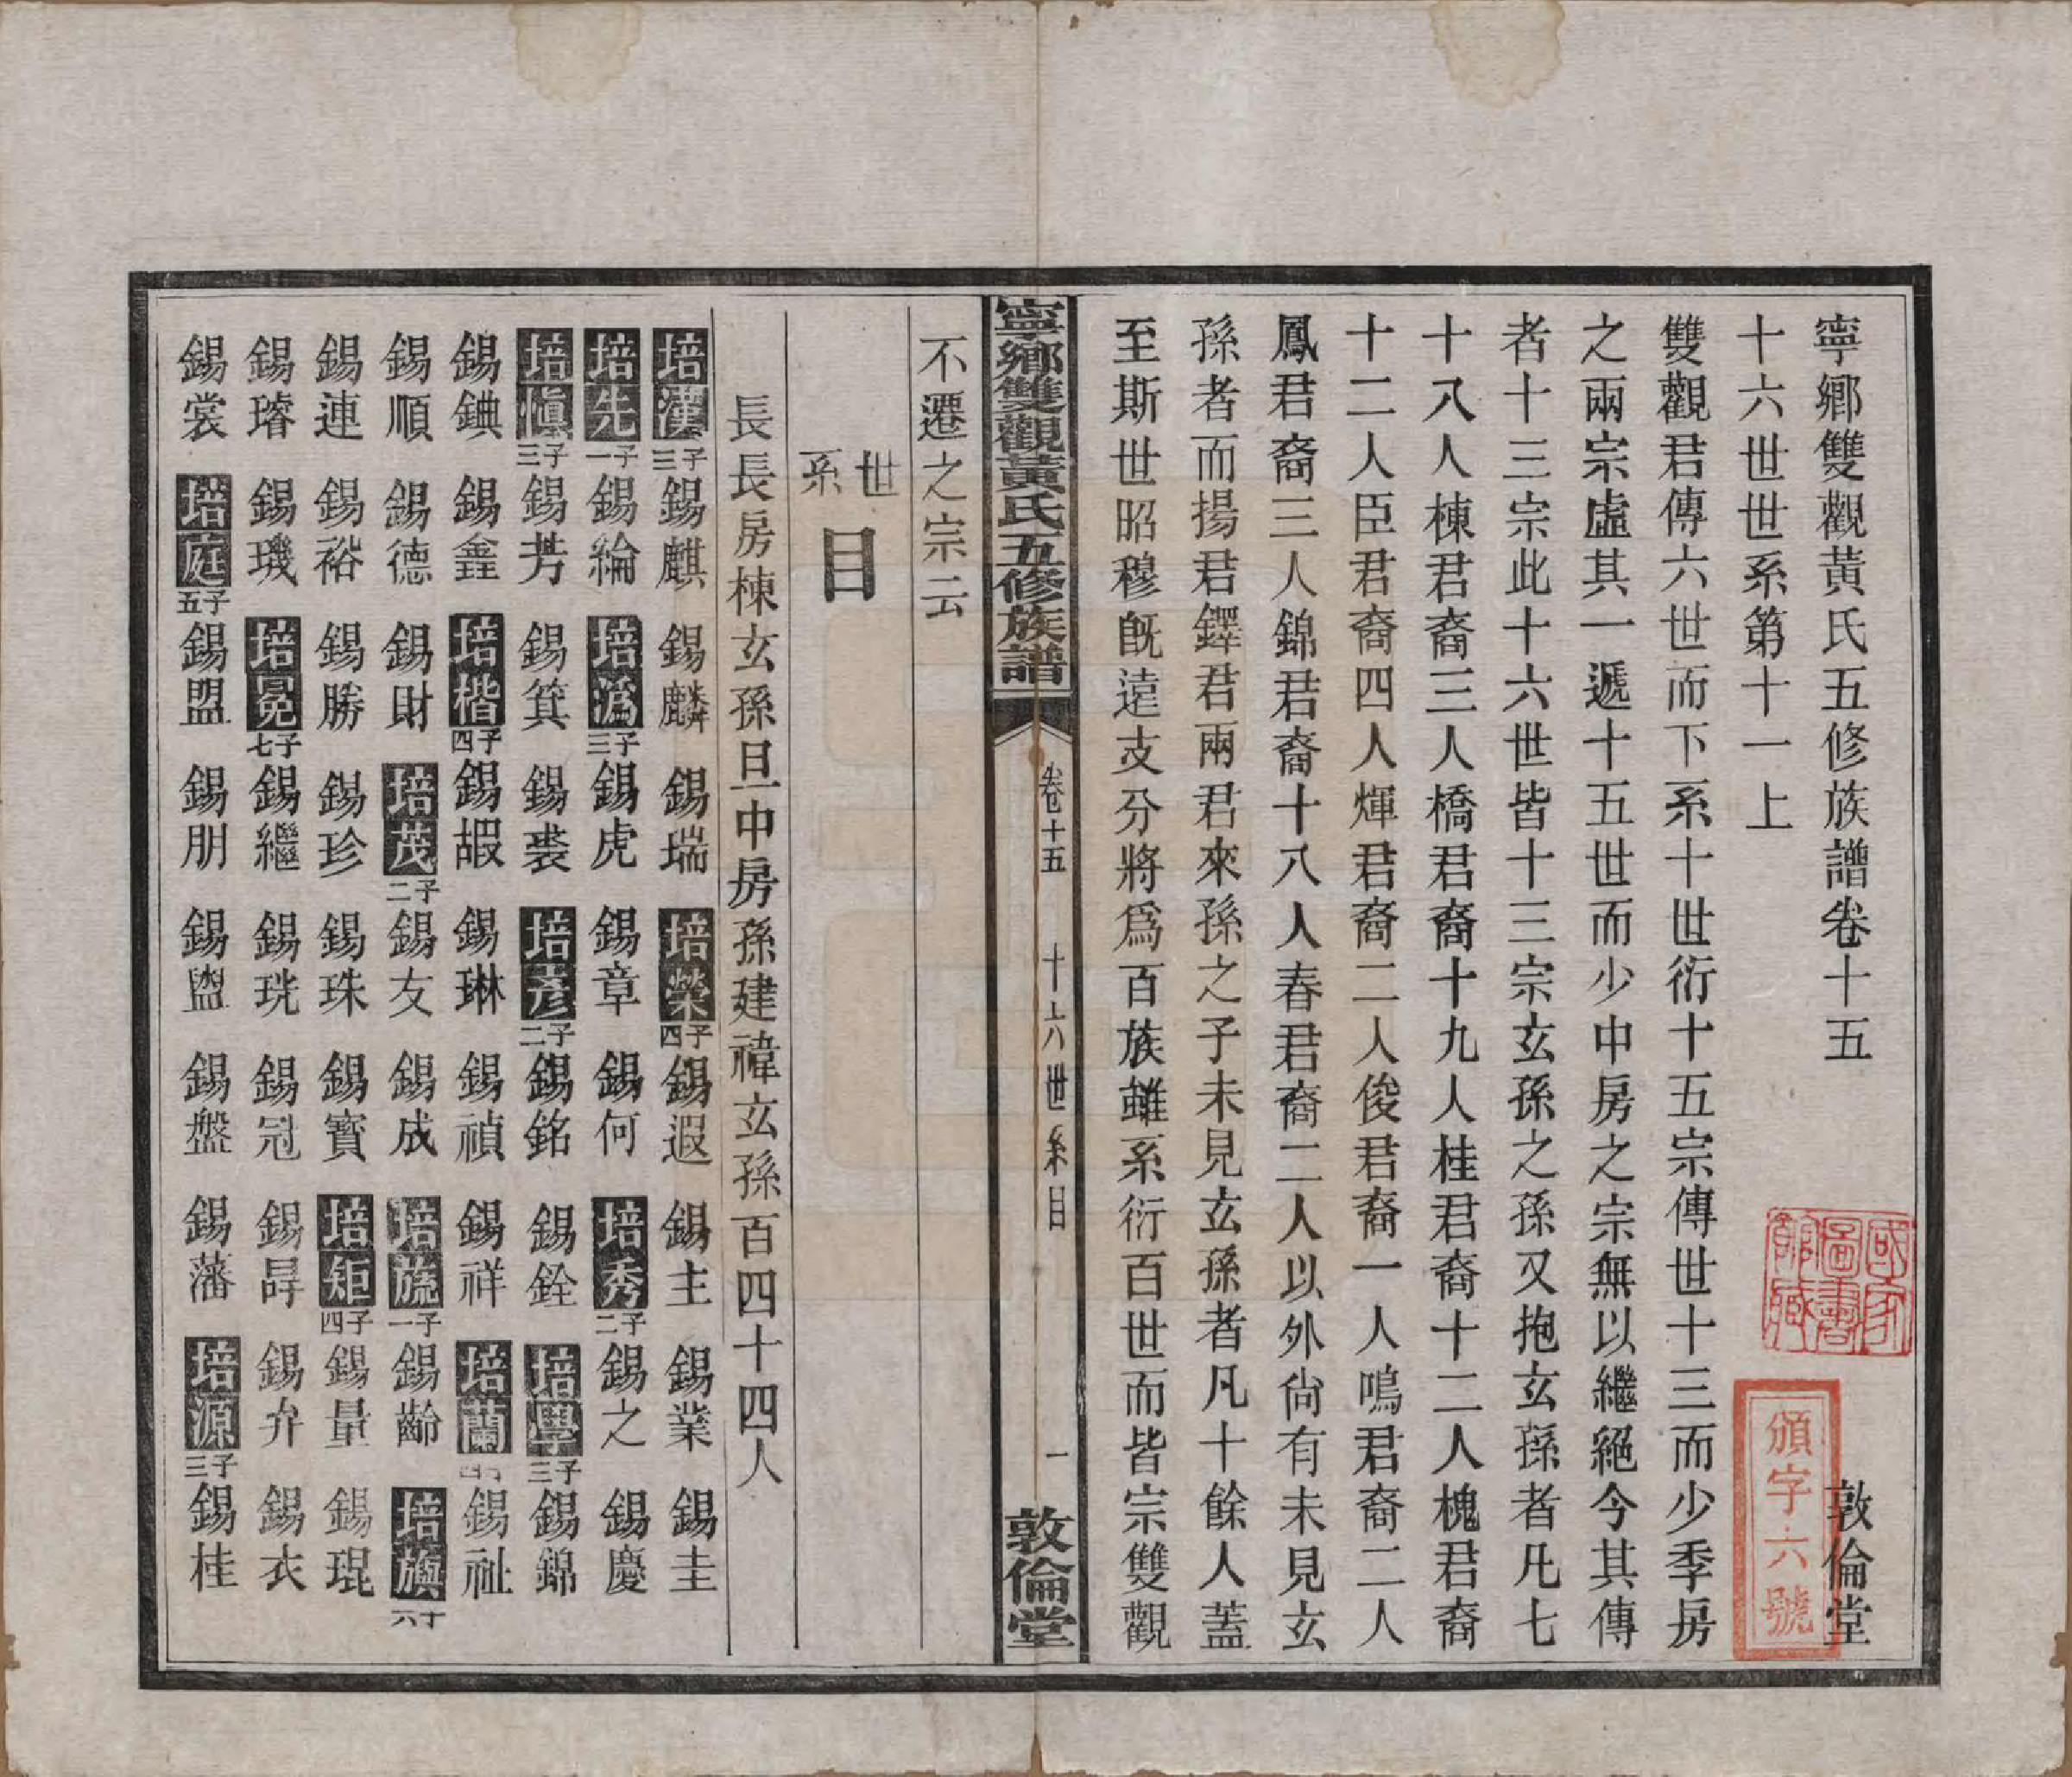 寧鄉雙觀黃氏五修族譜卷十五　敦倫堂
十六世世系第十一上
雙觀君傳六世而下系十世衍十五宗傳世十三而少季房
之兩宗虛其一遞十五世而少中房之宗無以繼絕今其傳
者十三宗此十六世皆十三宗玄孫之孫又抱玄孫者凡七
十八人棟君裔三人橋君裔十九人桂君裔十二人槐君裔
十二人臣君裔四人煇君裔二人俊君裔一人鳴君裔二人
鳳君裔三人錦君裔十八人春君裔二人以外尙有未見玄
孫者而揚君鐸君兩君來孫之子未見玄孫者凡十餘人蓋
至斯世昭穆旣遠支分將爲百族雖系衍百世而皆宗雙觀
寧鄉雙觀黃氏五修族譜　卷十五　十六世系目　一　敦倫堂
不遷之宗云
世系目
長長房棟玄孫旦中房孫建禕玄孫百四十四人
培漢三子　錫麒　錫麟　錫瑞　培榮四子　錫遐　錫主　錫業　錫圭
培先一子　錫綸　培潙三子　錫虎　錫章　錫何　培秀二子　錫之　錫慶
培愼三子　錫芳　錫箕　錫裘　培彥二子　錫銘　錫銓　培學三子　錫錦
錫錪　錫鑫　培楷四子　錫嘏　錫琳　錫禎　錫祥　培蘭　錫祉
錫順　錫德　錫財　培茂二子　錫友　錫成　培旒一子　錫齡　培旟六子
錫連　錫裕　錫勝　錫珍　錫珠　錫寶　培矩四子　錫量　錫琨
錫璿　錫璣　培冕七子　錫繼　錫珖　錫冠　錫冔　錫弁　錫衣
錫裳　培庭五子　錫盟　錫朋　錫盥　錫盤　錫藩　培源三子　錫桂
國家圖書館藏
頒字六號